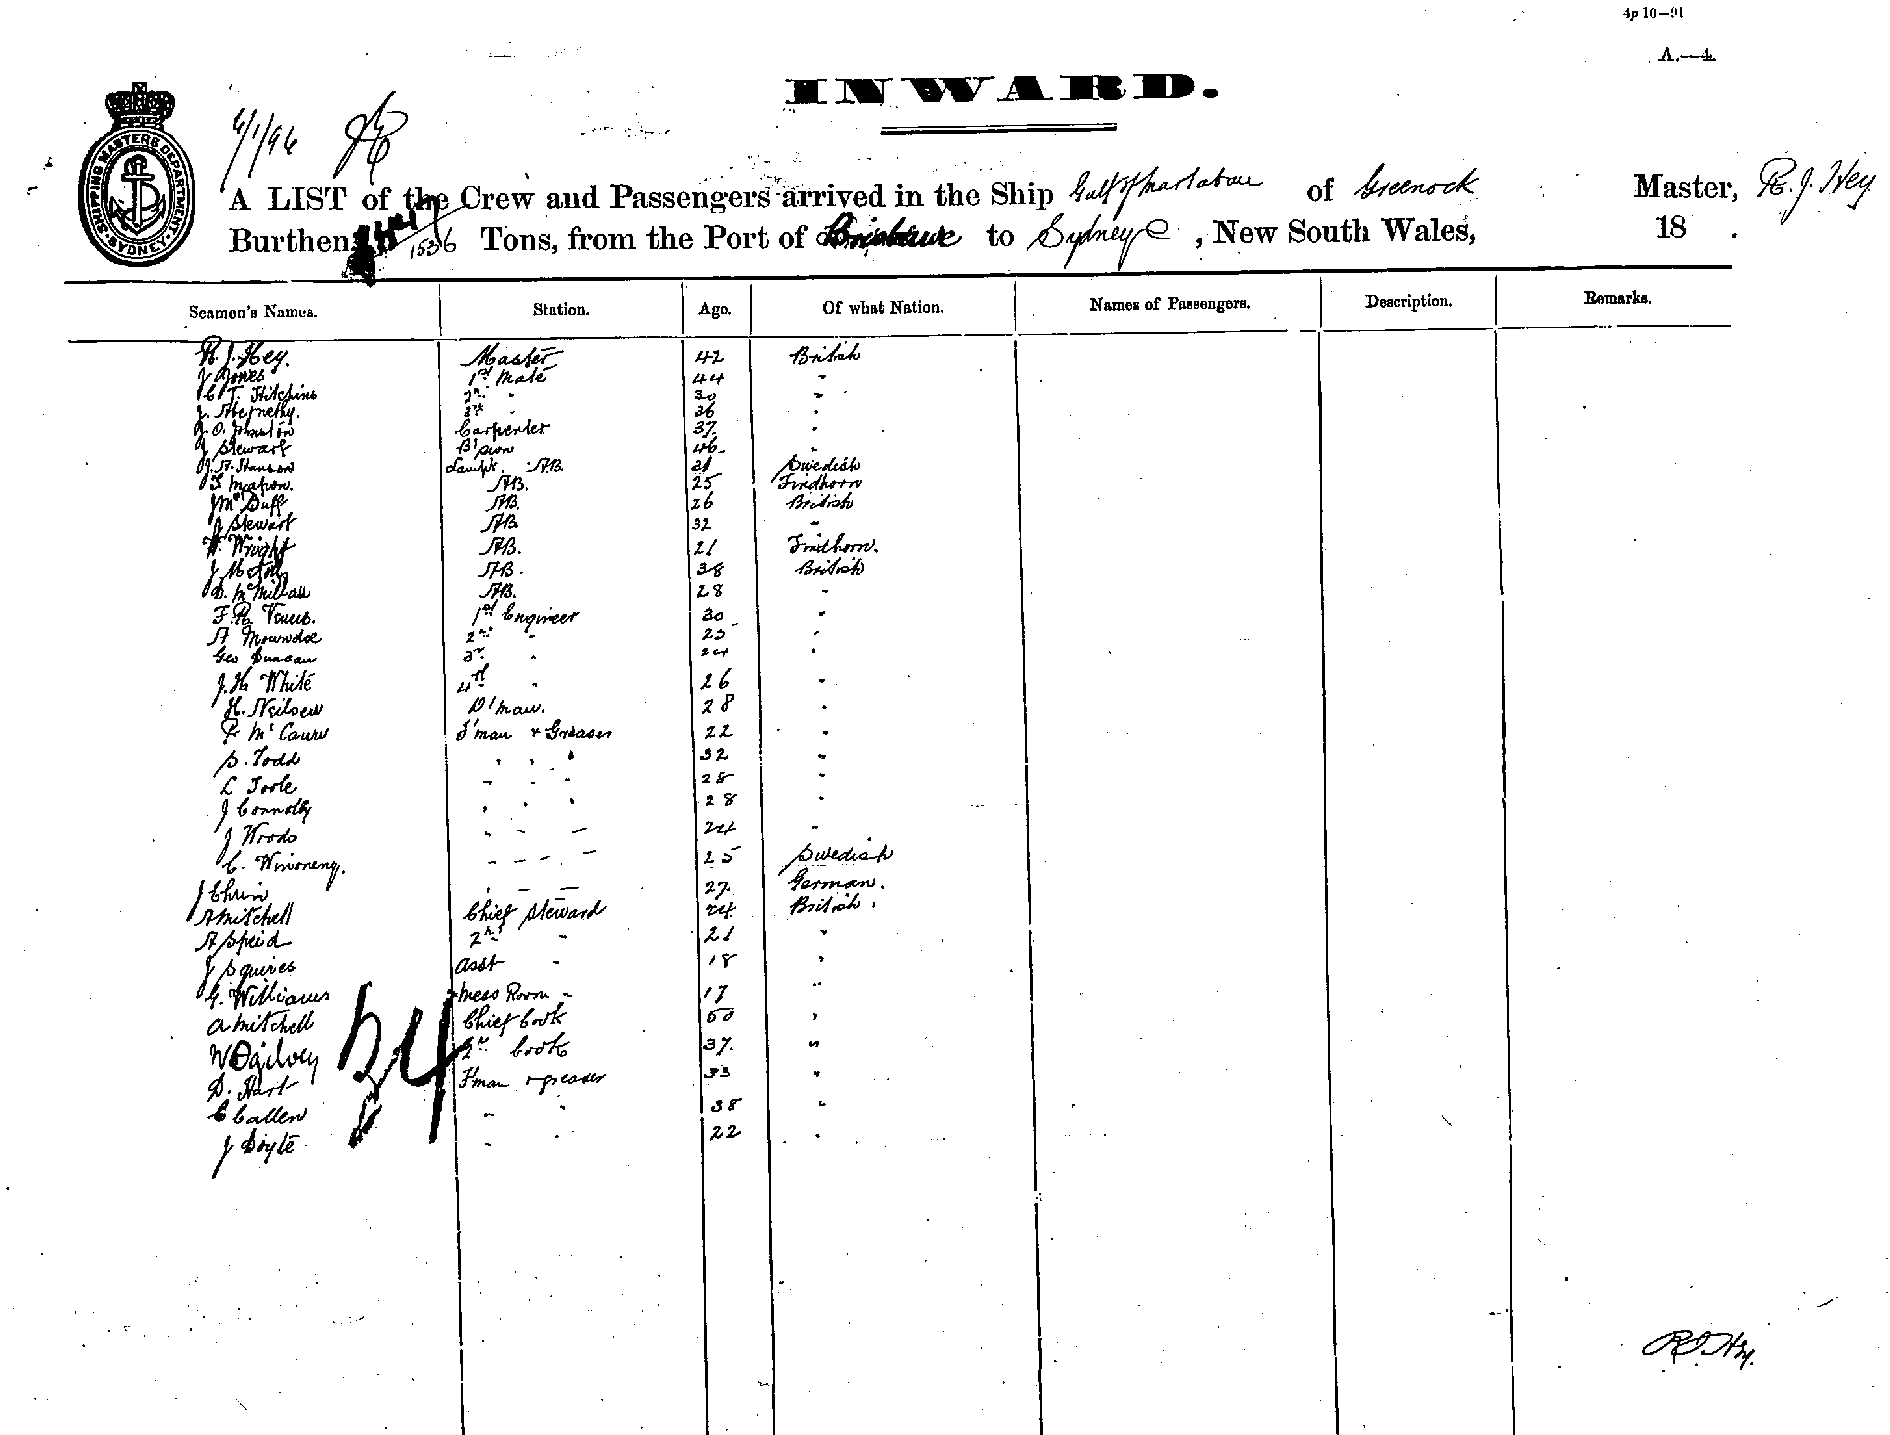 4p 10—91
A.—4.
INWARD.
SHIPPING MASTERS DEPARTMENT SYDNEY
6/1/96
A LIST of the Crew and Passengers arrived in the Ship Gulf of Martaban of Greenock Master, R. J. Hey
Burthen 1536 Tons, from the Port of Brisbane to Sydney, New South Wales, 18 .
Seamen's Names. Station. Age. Of what Nation. Names of Passengers. Description. Remarks.
R. J. Hey. Master 42 British
J Jones 1st Mate 44 "
C T. Hitchins 2nd " 30 "
J. Abernethy. 3rd " 36 "
J. O. Johnston Carpenter 37. "
J Stewart B'swn 46 "
Lamps. AB. 21 Swedish
AB. 25 Findhorn
J McDuff AB. 26 British
J Stewart AB 32 "
W. Wright AB. 21 Findhorn.
AB. 38 British
D. McMillan AB. 28 "
F. R. 1st Engineer 30 "
A 2nd " 23 "
Geo Duncan 3rd " 24 "
J. H. White 4th " 26 "
H. Neilsen D'man. 28 "
P McCaure F'man & Greaser 22 "
S. Todd " " " 32 "
L Toole " " " 28 "
J Connolly " " " 28 "
J Woods " " " 24 "
C. " " " 25 Swedish
J " " " 27. German.
A Mitchell Chief Steward 24 British.
A Speid 2nd " 21 "
J Squires Asst " 18 "
G. Williams Mess Room " 17 "
A Mitchell Chief Cook 50 "
W Ogilvey 2nd Cook 37. "
D. Hart F'man & greaser 33 "
C Callen " " 38 "
J Doyle " " 22 "
34
R. J. Hey.